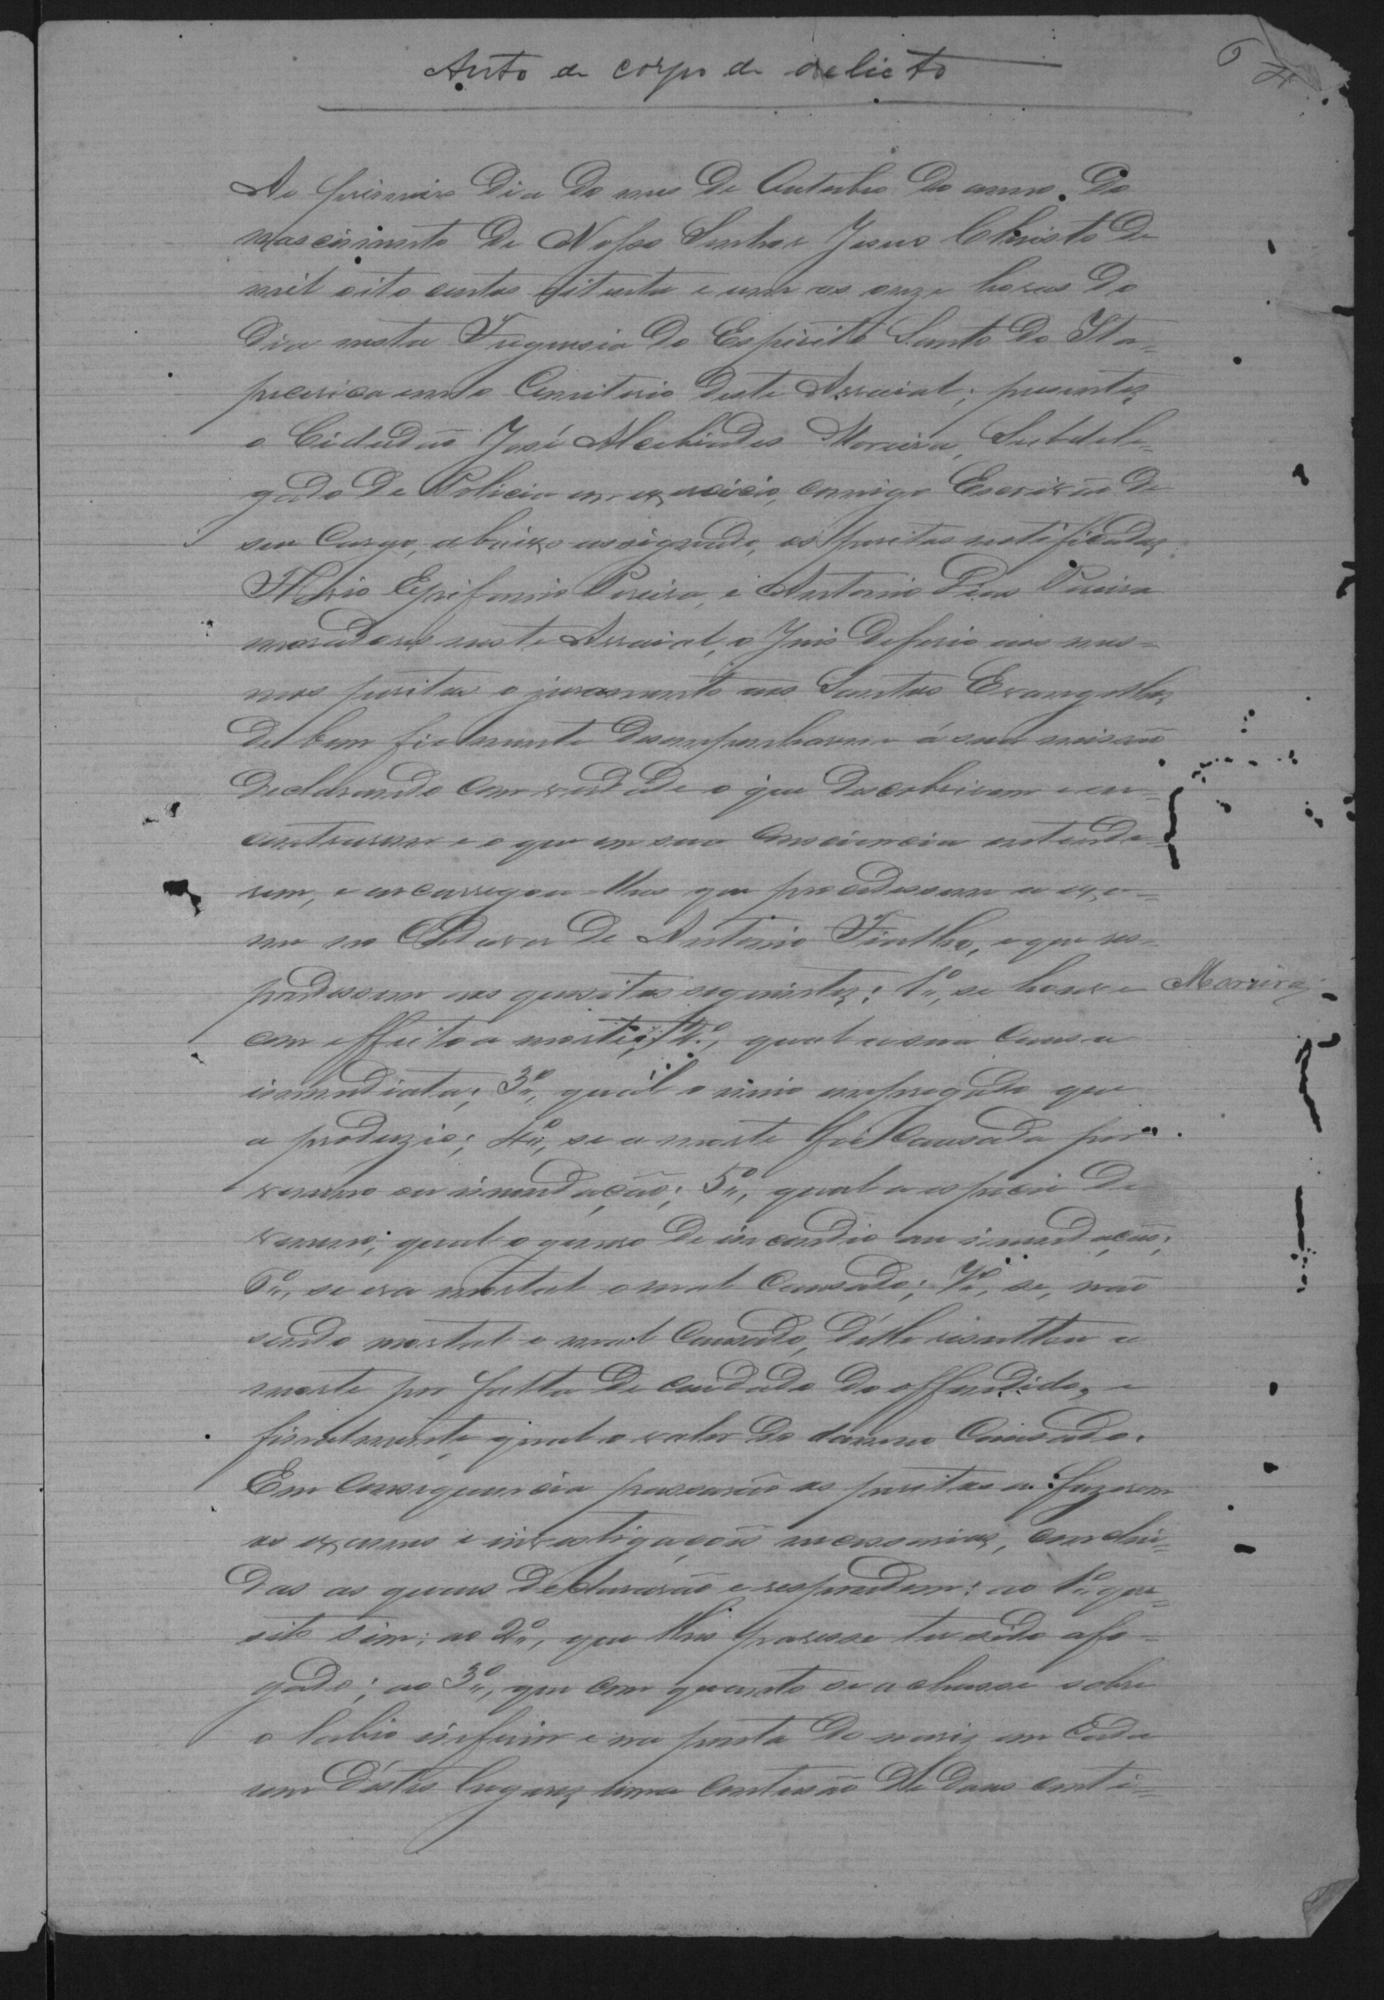 Auto de corpo de delicto
6
Ao primeiro dia do mes de Outubro do anno do
nascimento de Nosso Senhor Jesus Christo de
mil oito centos oitenta e um as onze horas do
dia nesta Freguesia do Espirito Santo do Ita-
pecerica em o Cemiterio deste Arraial; presentes
o Cidadão José Alcebiades Moreira, Subdele-
gado de Policia em exercicio, comigo Escrivão de
seu Cargo, abaixo assignado, os peritos notificados
Epifanio Pereira, e Antonio Dias Pereira
moradores neste Arraial, o Juis deferio aos mes-
mos peritos o juramento aos Santos Evangelhos
de bem fielmente desempenharem á sua missão
declarando com verdade o que descobriram e en-
contraram e o que em sua consciencia entende-
rem, e encarregou-lhes que procedessem a exa-
me no Cadaver de Antonio Fintho, e que res-
pondessem aos quesitos seguintes: 1º, se houve
Moreira
com effeito a morte; 2º, qual a sua causa
immediata; 3º, qual o meio empregado que
a produzio; 4º, se a morte foi causada por
veneno ou inundação; 5º, qual a especie de
veneno; qual o genero de incendio ou inundação;
6º, se era mortal o mal causado; 7º, se, não
sendo mortal o mal causado, d'elle resultou a
morte por falta de cuidado do offendido, e
finalmente, qual o valor do damno causado.
Em consequencia passarão os peritos a fazerem
os exames e investigações necessarias, conclui-
das as quaes declararão e respondem: ao 1º que-
sito sim; ao 2º, que lhes paresse ter sido afo-
gado; ao 3º, que com quanto se achasse sobre
o labio inferior e na ponta do nariz em cada
um d'estes lugares uma contusão de duas centi-